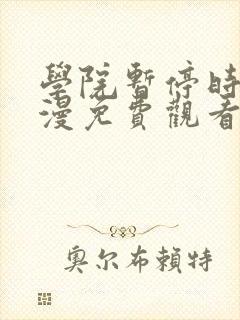 學院暫停時
漫免費觀看
奧尔布賴特